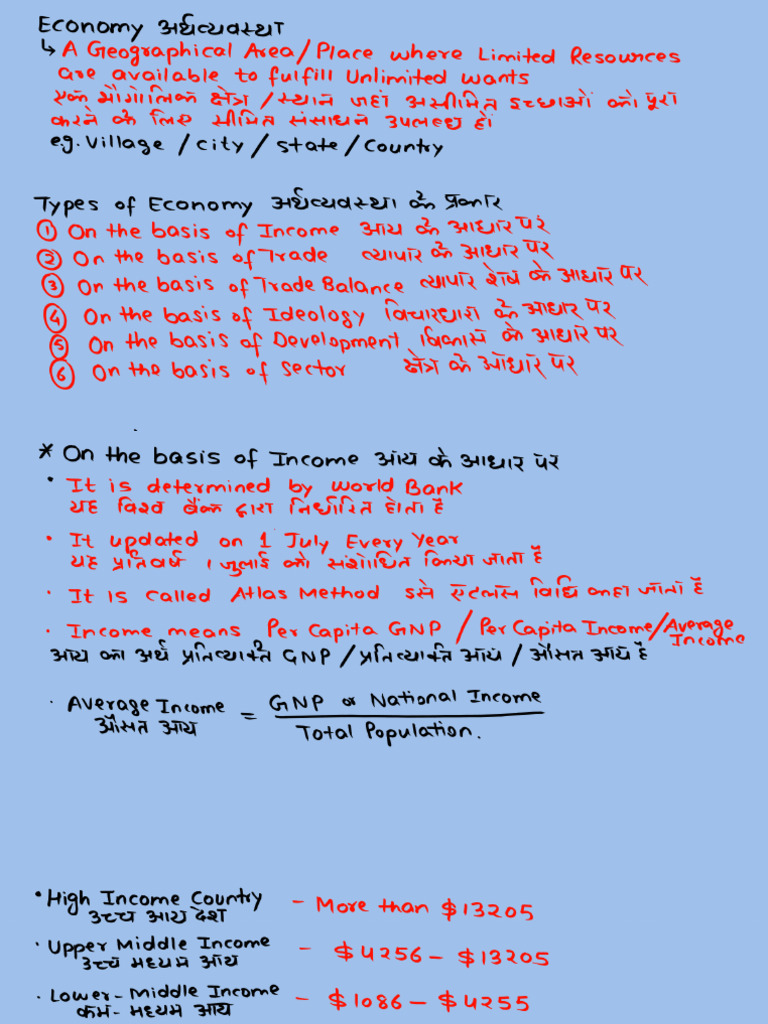 Economy अर्थव्यवस्था
↳ A Geographical Area/Place where Limited Resources
are available to fulfill Unlimited wants
एक भौगोलिक क्षेत्र / स्थान जहां असीमित इच्छाओं को पूरा
करने के लिए सीमित संसाधन उपलब्ध हों
e.g. Village / city / state / Country
Types of Economy अर्थव्यवस्था के प्रकार
① On the basis of Income आय के आधार पर
② On the basis of Trade व्यापार के आधार पर
③ On the basis of Trade Balance व्यापार शेष के आधार पर
④ On the basis of Ideology विचारधारा के आधार पर
⑤ On the basis of Development विकास के आधार पर
⑥ On the basis of Sector क्षेत्र के आधार पर
* On the basis of Income आय के आधार पर
• It is determined by World Bank
यह विश्व बैंक द्वारा निर्धारित होता है
• It updated on 1 July Every Year
यह प्रतिवर्ष 1 जुलाई को संशोधित किया जाता है
• It is called Atlas Method इसे एटलस विधि कहा जाता है
• Income means Per Capita GNP / Per Capita Income/Average Income
आय का अर्थ प्रतिव्यक्ति GNP / प्रतिव्यक्ति आय / औसत आय है
• Average Income = GNP or National Income
औसत आय Total Population.
• High Income Country - More than $13205
उच्च आय देश
• Upper Middle Income - $4256 - $13205
उच्च मध्यम आय
• Lower-Middle Income - $1086 - $4255
कम-मध्यम आय